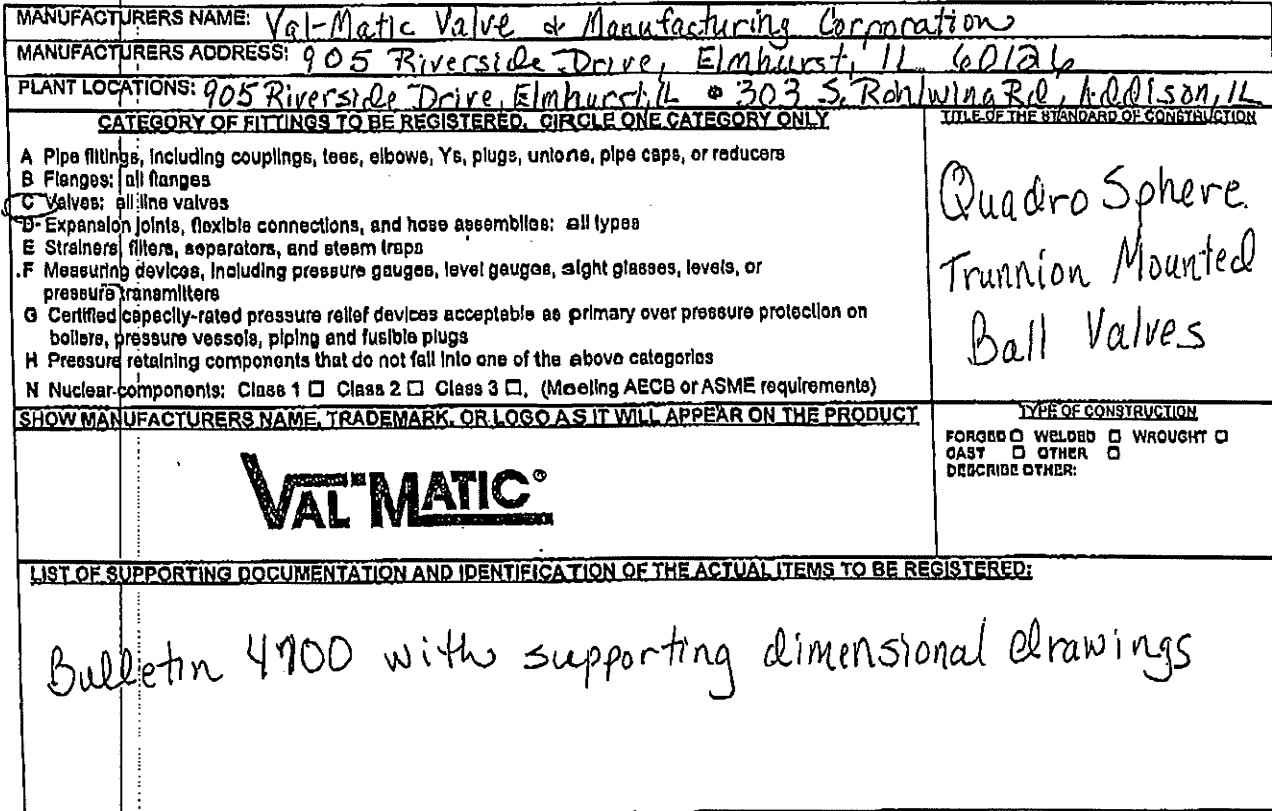 MANUFACTURERS NAME: Val-Matic Valve & Manufacturing Corporation
MANUFACTURERS ADDRESS: 905 Riverside Drive, Elmhurst, IL 60126
PLANT LOCATIONS: 905 Riverside Drive, Elmhurst, IL • 303 S. Rohlwing Rd, Addison, IL
CATEGORY OF FITTINGS TO BE REGISTERED, CIRCLE ONE CATEGORY ONLY
A Pipe fittings, including couplings, tees, elbows, Ys, plugs, unions, pipe caps, or reducers
B Flanges: all flanges
C Valves: all line valves
D Expansion joints, flexible connections, and hose assemblies: all types
E Strainers, filters, separators, and steam traps
F Measuring devices, including pressure gauges, level gauges, sight glasses, levels, or
pressure transmitters
G Certified capacity-rated pressure relief devices acceptable as primary over pressure protection on
boilers, pressure vessels, piping and fusible plugs
H Pressure retaining components that do not fall into one of the above categories
N Nuclear components: Class 1 ☐ Class 2 ☐ Class 3 ☐, (Meeting AECB or ASME requirements)
TITLE OF THE STANDARD OF CONSTRUCTION
Quadro Sphere
Trunnion Mounted
Ball Valves
SHOW MANUFACTURERS NAME, TRADEMARK, OR LOGO AS IT WILL APPEAR ON THE PRODUCT
VAL MATIC®
TYPE OF CONSTRUCTION
FORGED ☐ WELDED ☐ WROUGHT ☐
CAST ☐ OTHER ☐
DESCRIBE OTHER:
LIST OF SUPPORTING DOCUMENTATION AND IDENTIFICATION OF THE ACTUAL ITEMS TO BE REGISTERED:
Bulletin 4700 with supporting dimensional drawings